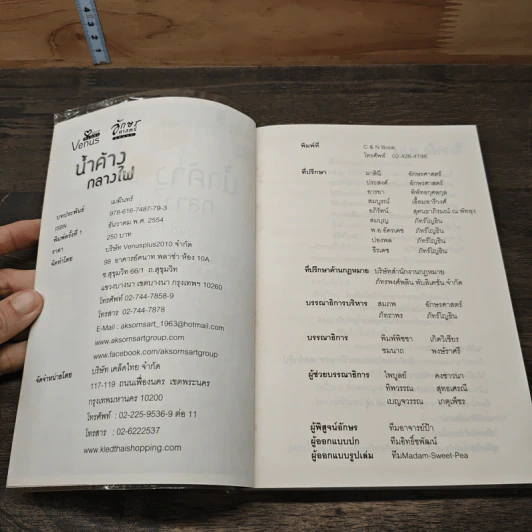 Venus
อักษรศาสตร์
น้ำค้าง
กลางไฟ
บทประพันธ์ เมฆินทร์
ISBN 978-616-7487-79-3
พิมพ์ครั้งที่ 1 ธันวาคม พ.ศ. 2554
ราคา 250 บาท
จัดทำโดย บริษัท Venusplus2010 จำกัด
98 อาคารอัคนาท พลาซ่า ห้อง 10A
ซ.สุขุมวิท 66/1 ถ.สุขุมวิท
แขวงบางนา เขตบางนา กรุงเทพฯ 10260
โทรศัพท์ 02-744-7858-9
โทรสาร 02-744-7878
E-Mail : aksornsart_1963@hotmail.com
www.aksornsartgroup.com
www.facebook.com/aksornsartgroup
จัดจำหน่ายโดย บริษัท เคล็ดไทย จำกัด
117-119 ถนนเฟื่องนคร เขตพระนคร
กรุงเทพมหานคร 10200
โทรศัพท์ : 02-225-9536-9 ต่อ 11
โทรสาร : 02-6222537
www.kledthaishopping.com
พิมพ์ที่ C & N Book
โทรศัพท์ 02-426-4196
ที่ปรึกษา มาลินี อักษรศาสตร์
ประสงค์ อักษรศาสตร์
สมบูรณ์
อภิรัตน์
สมบุญ ภัทรีญอิน
พ.อ.อัครเดช ภัทรีญอิน
ปองพล ภัทรีญอิน
ธีรเดช ภัทรีญอิน
ที่ปรึกษาด้านกฎหมาย บริษัทสำนักงานกฎหมาย
ภัทรพงศ์พลิน พับลิเคชั่น จำกัด
บรรณาธิการบริหาร สมภพ อักษรศาสตร์
ภัทราพร ภัทรีญอิน
บรรณาธิการ พิมพ์พิชชา เกิดวิเชียร
ชมนาถ พงษ์ราศรี
ผู้ช่วยบรรณาธิการ ไพบูลย์ คงชาวนา
ทิพวรรณ สุทธเศรณี
เบญจวรรณ เกตุเพ็ชร
ผู้พิสูจน์อักษร ทีมอาจารย์ป้า
ผู้ออกแบบปก ทีมอิทธิ์ชพัฒน์
ผู้ออกแบบรูปเล่ม ทีมMadam-Sweet-Pea